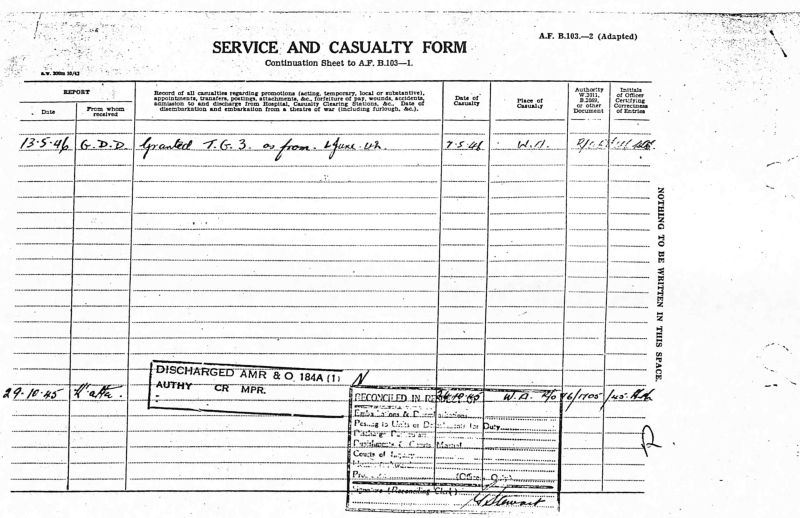 A.F. B.103.—2 (Adapted)
SERVICE AND CASUALTY FORM
Continuation Sheet to A.F. B.103—1.
A.W. 200m 10/43
REPORT
Date
From whom received
Record of all casualties regarding promotions (acting, temporary, local or substantive),
appointments, transfers, postings, attachments, &c., forfeiture of pay, wounds, accidents,
admission to and discharge from Hospital, Casualty Clearing Stations, &c. Date of
disembarkation and embarkation from a theatre of war (including furlough, &c.).
Date of Casualty
Place of Casualty
Authority W.3011, B.2069, or other Document
Initials of Officer Certifying Correctness of Entries
13.5.46 G.D.D. Granted T.G.3. as from 7.5.46 W.A.
NOTHING TO BE WRITTEN IN THIS SPACE.
DISCHARGED AMR & O 184A (1)
AUTHY CR MPR.
29.10.45 W.A. 46/1705/45
RECONCILED IN RESPECT OF
Posting to Units or Detachments for Duty
Courts of
Signature (Reconciling Clerk)
Stewart